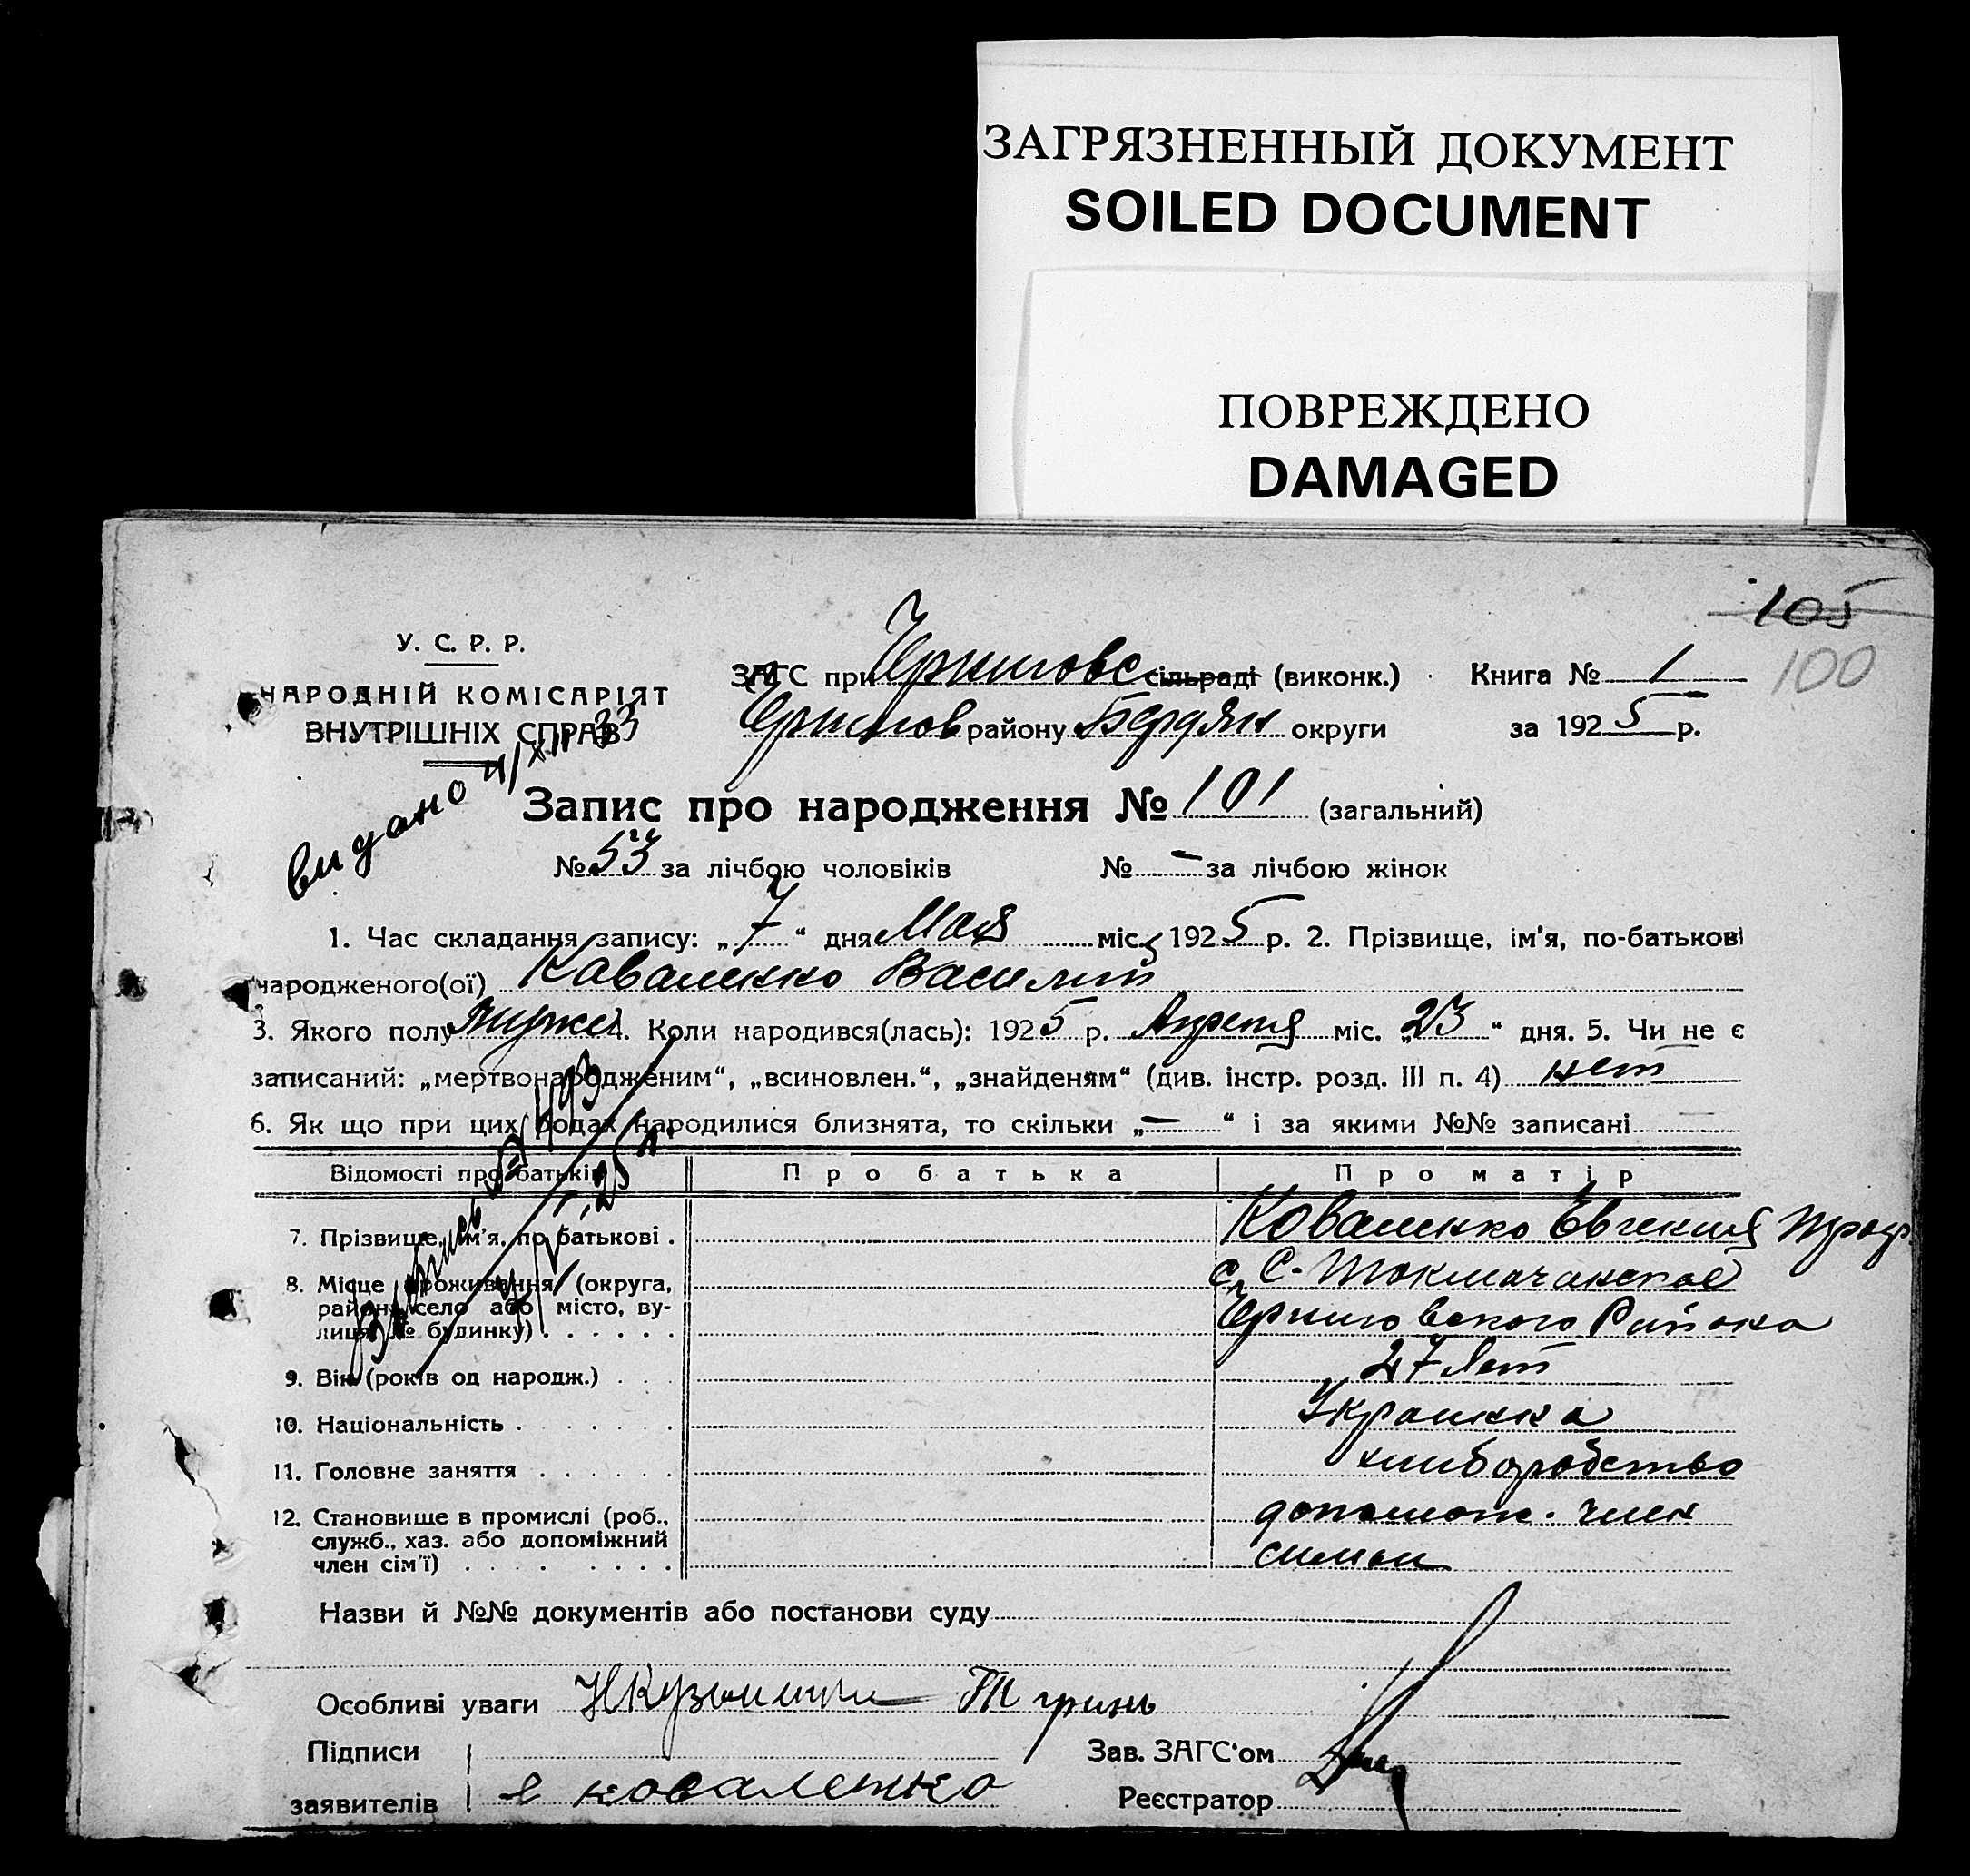 ЗАГРЯЗНЕННЫЙ ДОКУМЕНТ
SOILED DOCUMENT
ПОВРЕЖДЕНО
DAMAGED
105
100
У. С. Р. Р.
НАРОДНІЙ КОМІСАРІЯТ
ВНУТРІШНІХ СПРАВ
ЗАГС при Черниговс сільраді (виконк.) Книга № 1
Чернигов району Бердян округи за 1925 р.
видано 4/XII 33
Запис про народження № 101 (загальний)
№ 53 за лічбою чоловіків № — за лічбою жінок
1. Час складання запису: „7" дня Мая міс. 1925 р. 2. Прізвище, ім'я, по-батькові
народженого(ої) Коваленко Василий
3. Якого полу Мужск 4. Коли народився(лась): 1925 р. Апреля міс. „23" дня. 5. Чи не є
записаний: „мертвонародженим", „всиновлен.", „знайденям" (див. інстр. розд. III п. 4) нет
6. Як що при цих родах народилися близнята, то скільки „—" і за якими №№ записані
Відомості про батьків Про батька Про матір
7. Прізвище, ім'я, по батькові . Коваленко Евгения Проф
8. Місце проживання (округа, с. С-Токмачанское
район, село або місто, ву-
лиця, № будинку) . . . . . . Черниговского Района
9. Вік (років од народж.) . . . 27 лет
10. Національність . . . . . . Украинка
11. Головне заняття . . . . . . хлиборобство
12. Становище в промислі (роб., допомож. член
служб., хаз. або допоміжний
член сім'ї) . . . . . . . . семьи
Назви й №№ документів або постанови суду
Особливі уваги НКузьминин Гринь
Підписи Зав. ЗАГС'ом
заявителів е коваленко Реєстратор